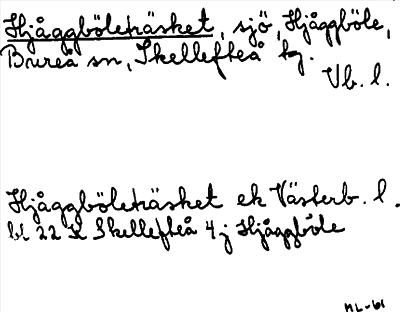 Hjåggböleträsket, sjö, Hjåggböle,
Bureå sn, Skellefteå tg.
Vb. l.
Hjåggböleträsket ek Västerb. l.
bl 22 K Skellefteå 4 j Hjåggböle
ML-61